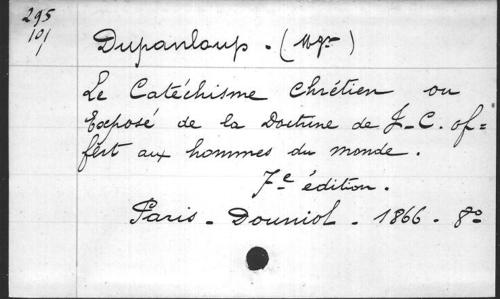 295
101
Dupanloup - (Mgr)
Le Catéchisme chrétien ou
Exposé de la Doctrine de J-C. of=
fert aux hommes du monde.
7e édition.
Paris - Douniol - 1866 - 8o